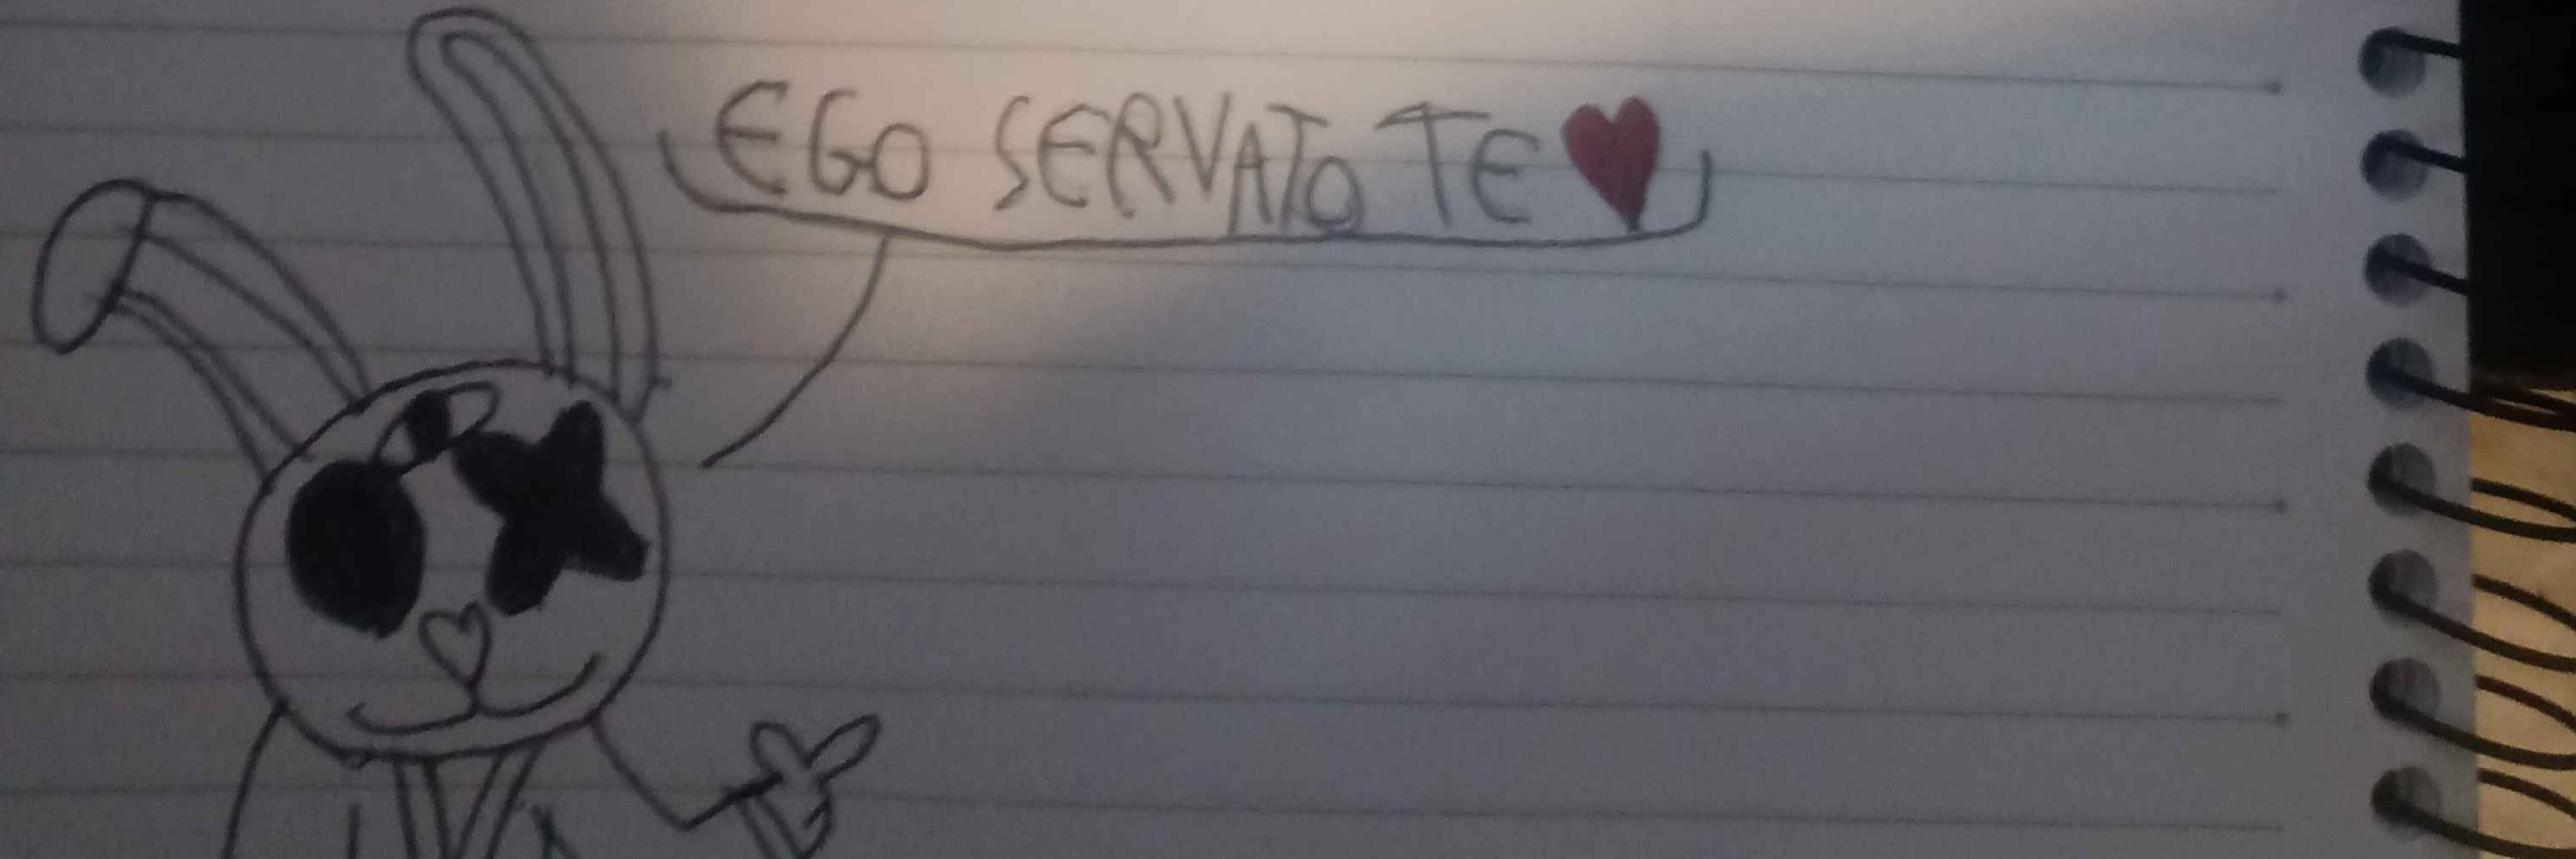 EGO SERVATO TE ♥